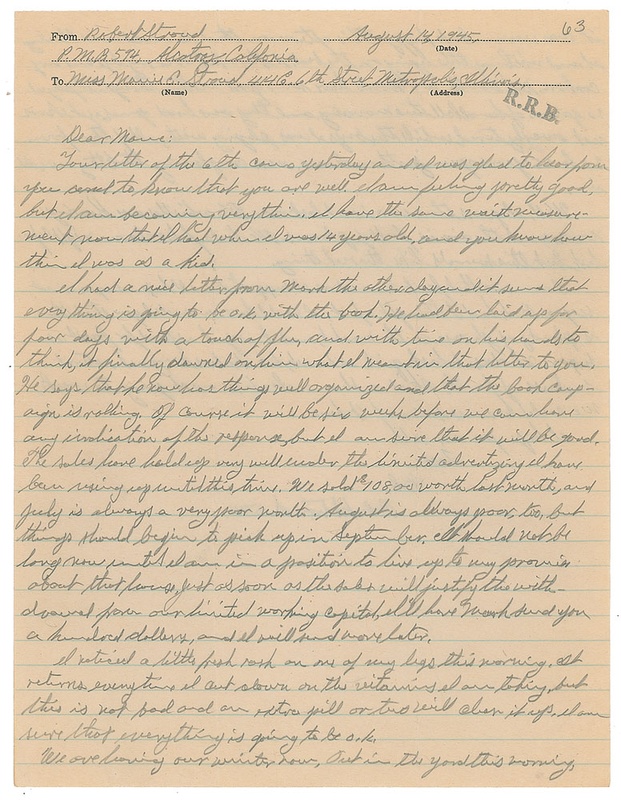 63
From Robert Stroud August 14, 1945,
(Date)
P.M.B 594, Alcatraz, California
To Miss Mamie E. Stroud, 6th Street Metropolis, Illinois,
(Name) (Address)
R.R.B.
Dear Mame:
Your letter of the 6th came yesterday and I was glad to hear from
you and to know that you are well. I am feeling pretty good,
but I am becoming very thin. I have the same waist measure-
ment now that I had when I was 14 years old, and you know how
thin I was as a kid.
I had a nice letter from Mark the other day and it seems that
everything is going to be o.k with the book. He had been laid up for
four days with a touch of flu, and with time on his hands to
think, it finally dawned on him what I meant in that letter to you.
He says that he now has things well organized and that the book camp-
aign is rolling. Of course it will be six weeks before we can have
any indication of the response, but I am sure that it will be good.
The sales have held up very well under the limited advertizing I have
been using up until this time. We sold $108.00 worth last month, and
July is always a very poor month. August is always poor, too, but
things should begin to pick up in September. It should not be
long now until I am in a position to live up to my promise
about that house, just as soon as the sales will justify the with-
drawal from our limited working capital, I'll have Mark send you
a hundred dollars, and I will send more later.
I noticed a little fresh rash on one of my legs this morning. It
returns everytime I cut down on the vitamins I am taking, but
this is not bad and an extra pill or two will clear it up. I am
sure that everything is going to be o.k.
We are having our winter now, Out in the yard this morning,